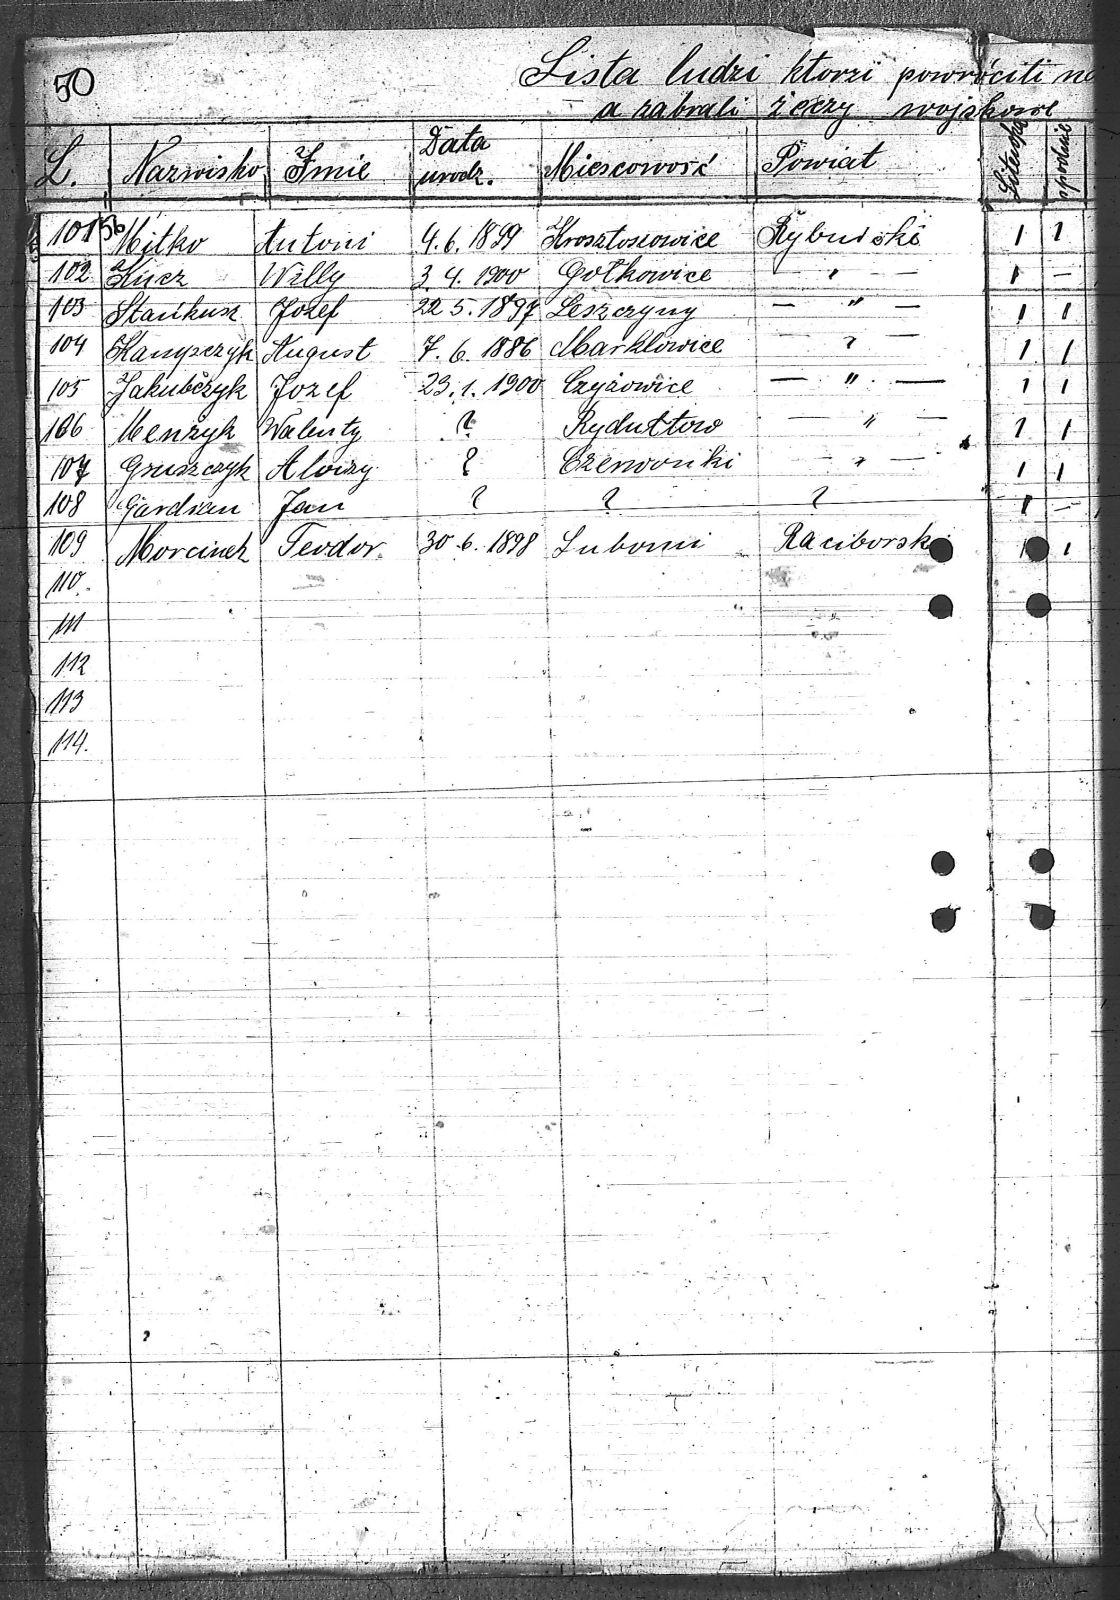 50
Lista ludzi ktorzi powrócili
a zabrali żeczy wojskowe
L. Nazwisko Imie Data urodz. Miescowość Powiat spodnie
101 56 Mitko Antoni 4.6.1899 Krosztoszowice Rybnicki 1 1
102 Kucz Willy 3.4.1900 Gołkowice — " — 1 —
103 Stańkusz Jozef 22.5.1897 Leszczyny — " — 1 1
104 August 7.6.1886 Marklowice — " — 1 1
105 Jakubczyk Jozef 23.1.1900 Czyżowice — " — 1 1
106 Menżyk Walenty ? Rydułtow — " — 1 1
107 Gruszczyk Alowzy ? Czerwonki — " — 1 1
108 Gardian Jan ? ? ? 1 —
109 Morcinek Teodor 30.6.1898 Lubomi Raciborski 1 1
110.
111
112
113
114.